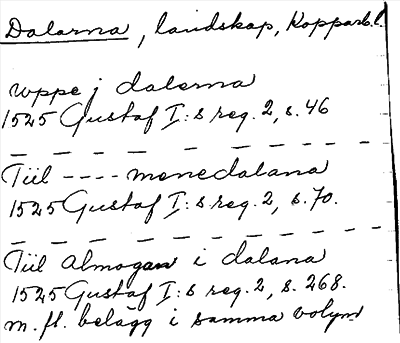 Dalarna, landskap, Kopparb.l.
uppe j dalerna
1525 Gustaf I:s reg. 2, s. 46
Tiil ---- menedalana
1525 Gustaf I:s reg. 2, s. 70.
Tiil Almogan i dalana
1525 Gustaf I:s reg. 2, s. 268.
m. fl. belägg i samma volym